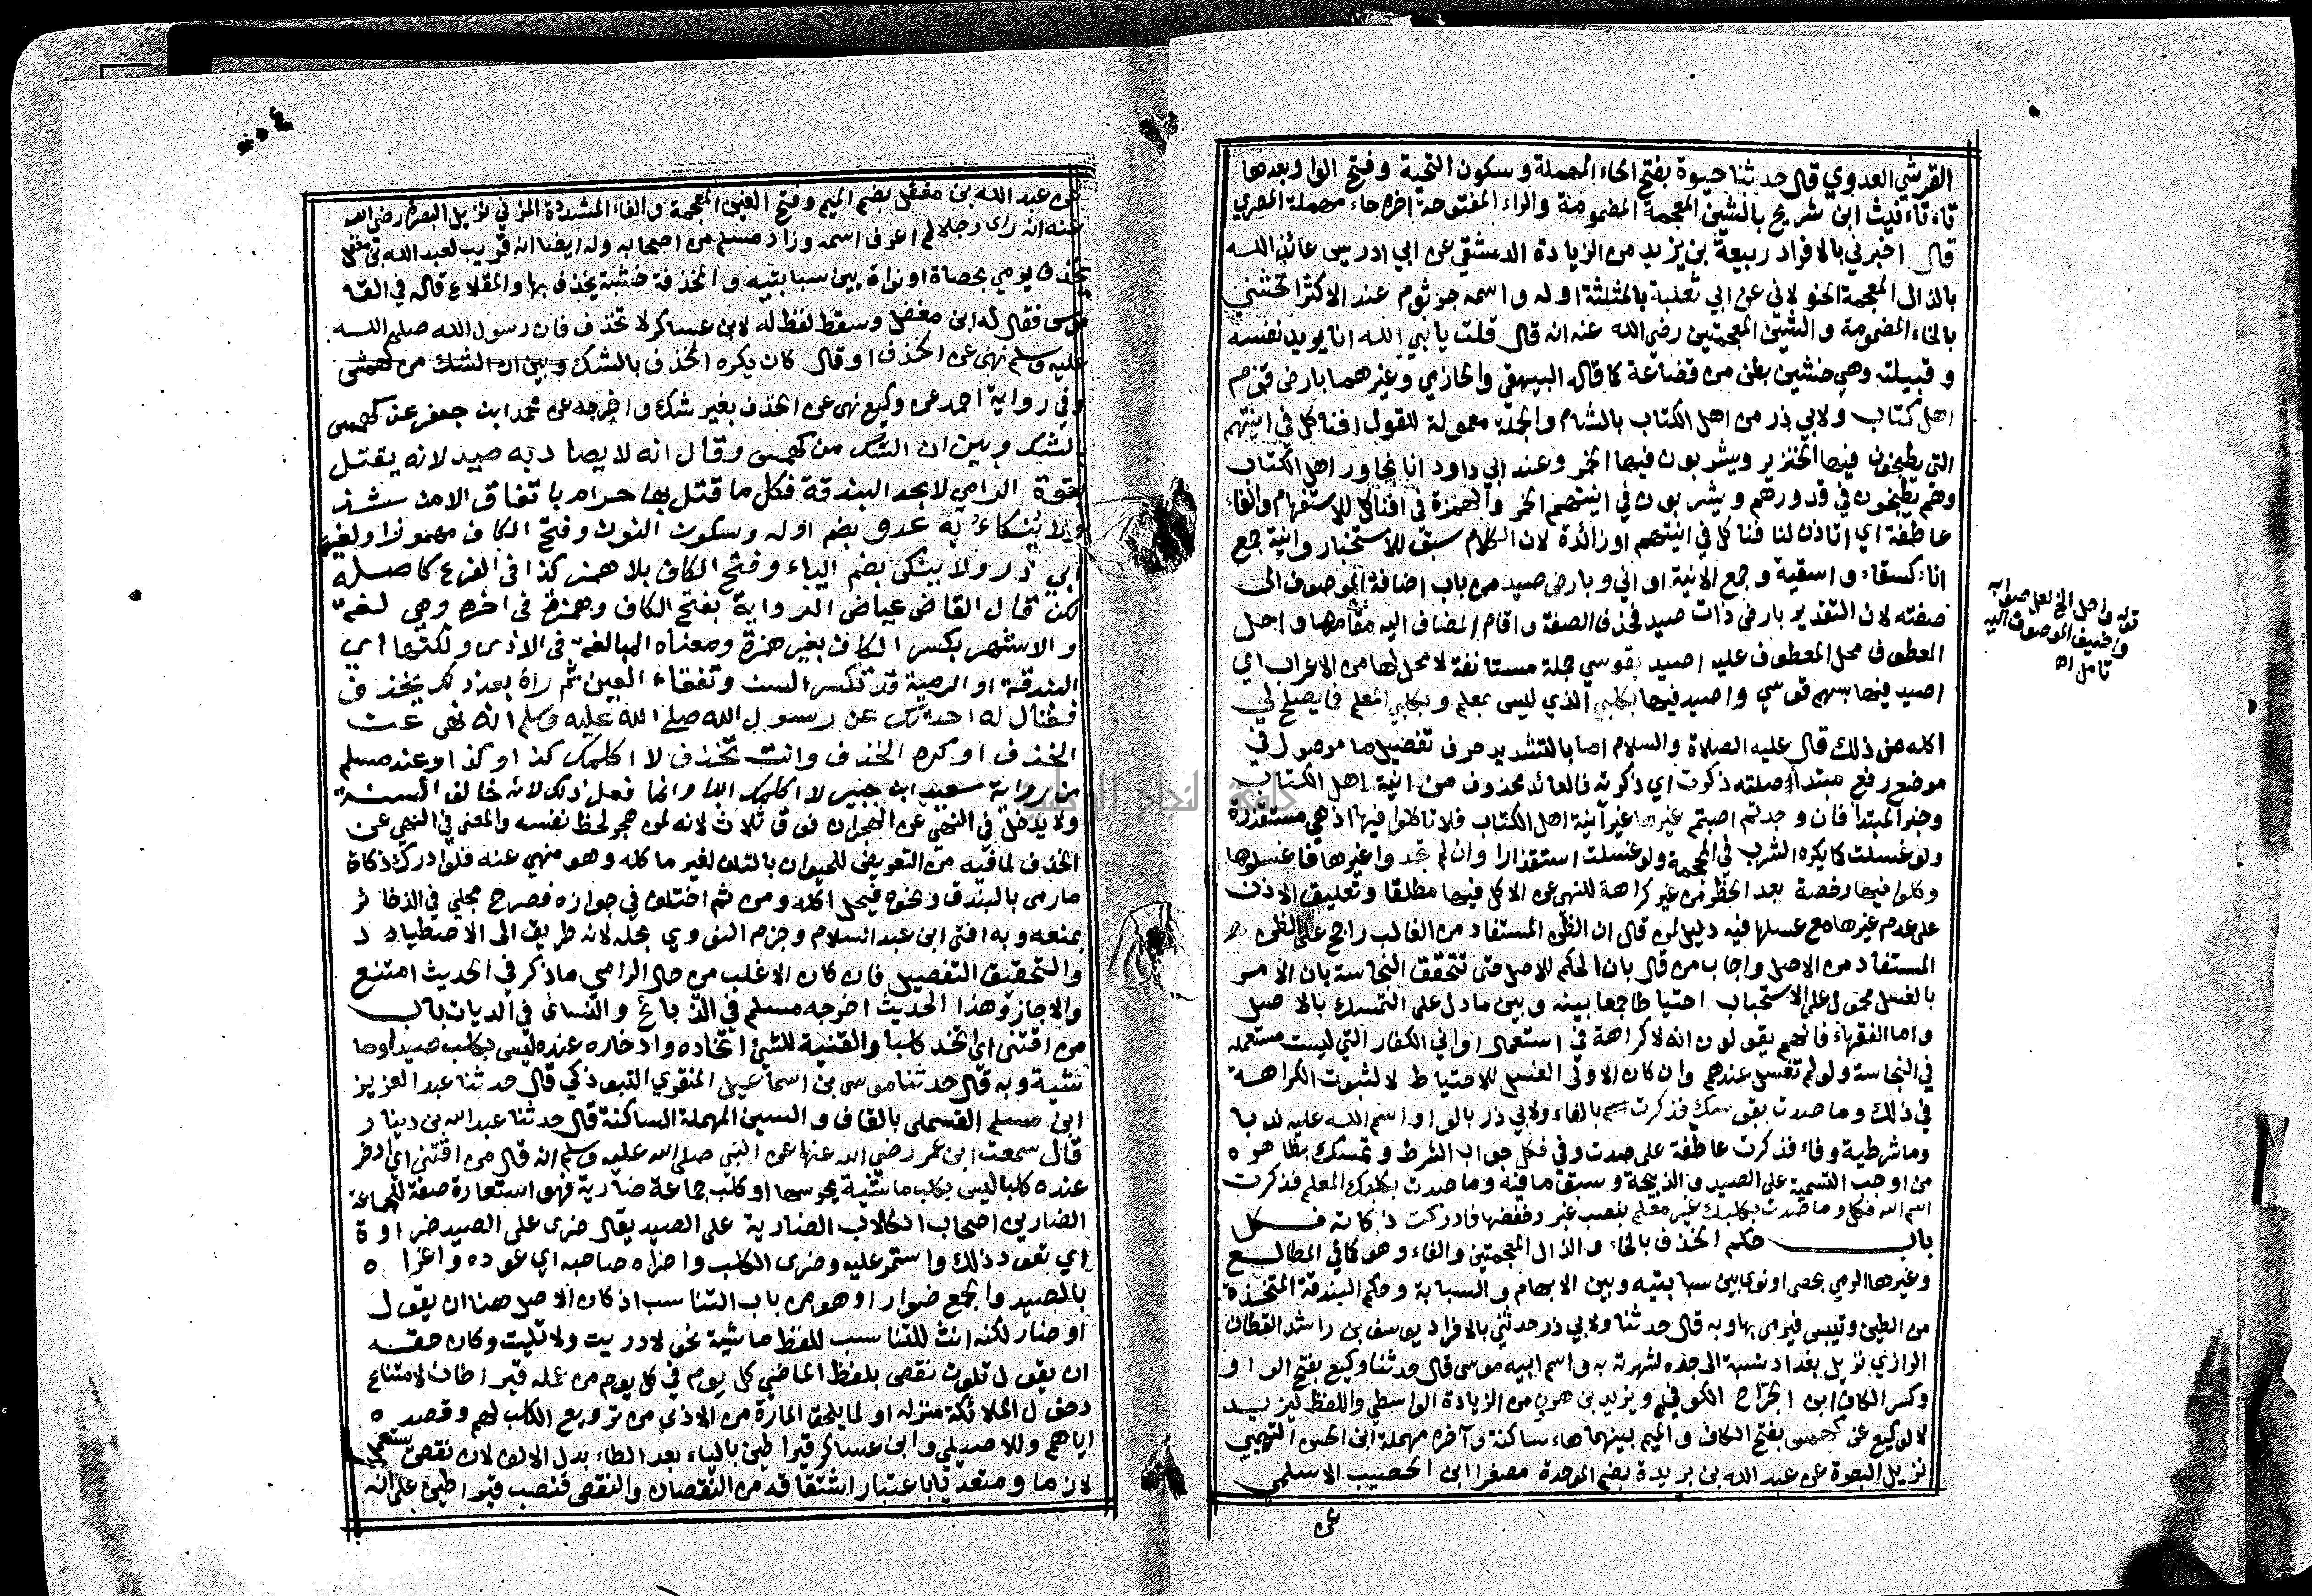 القرشي العدوي قال حدثنا حيوة بفتح الحاء المهملة وسكون التحية وفتح الواو بعدها
تاء تأنيث ابن شريح بالشين المعجمة المضمومة والراء المفتوحة اخره حاء مهملة المصري
قال اخبرني بالافراد ربيعة بن يزيد من الزيادة الدمشقي عن ابي ادريس عائذ الله
بالذال المعجمة الخولاني عن ابي ثعلبة بالمثلثة اوله واسمه جرثوم عند الاكثر الخشني
بالخاء المضمومة والشين المعجمتين رضي الله عنه انه قال قلت يا نبي الله انا يريد نفسه
وقبيلته وهي خشين بطن من قضاعة كما قاله البيهقي والحازمي وغيرهما بارض قوم
اهل كتاب ولابي ذر من اهل الكتاب بالشام والجملة معمولة للقول افناكل في انيتهم
التي يطبخون فيها الخنزير ويشربون فيها الخمر وعند ابي داود انا نجاور اهل الكتاب
وهم يطبخون في قدورهم ويشربون في انيتهم الخمر والهمزة في افناكل للاستفهام والفاء
عاطفة اي اتاذن لنا فناكل في انيتهم او زائدة لان الكلام سبق للاستخبار وانية جمع
اناء كسقاء واسقية وجمع الانية اواني وبارض صيد من باب اضافة الموصوف الى
صفته لان التقدير بارض ذات صيد فحذف الصفة واقام المضاف اليه مقامها واحل
المعطوف محل المعطوف عليه اصيد بقوسي جملة مستانفة لا محل لها من الاعراب اي
اصيد فيها بسهم قوسي واصيد فيها بكلبي الذي ليس بمعلم وبكلبي المعلم فما يصلح لي
اكله من ذلك قال عليه الصلاة والسلام اما بالتشديد حرف تفصيل ما موصول في
موضع رفع مبتدأ صلته ذكرت اي ذكرته فالعائد محذوف من انية اهل الكتاب
وخبر المبتدا فان وجدتم اصبتم غيرها غير آنية اهل الكتاب فلا تاكلوا فيها اذ هي مستقذرة
ولو غسلت كما يكره الشرب في المحجمة ولو غسلت استقذارا وان لم تجدوا غيرها فاغسلوها
وكلوا فيها رخصة بعد الحظر من غير كراهة للنهي عن الاكل فيها مطلقا وتعليق الاذن
على عدم غيرها مع غسلها فيه دليل لمن قال ان الظن المستفاد من الغالب راجح على الظن
المستفاد من الاصل واجاب من قال بان الحكم للاصل حتى تتحقق النجاسة بان الامر
بالغسل محمول على الاستحباب احتياطا جمعا بينه وبين ما دل على التمسك بالاصل
واما الفقهاء فانهم يقولون انه لا كراهة في استعمال اواني الكفار التي ليست مستعملة
في النجاسة ولو لم تغسل عندهم وان كان الاولى الغسل للاحتياط لا لثبوت الكراهة
في ذلك وما صدت بقوسك فذكرت بالفاء ولابي ذر بالواو اسم الله عليه ندبا
وما شرطية وفاء فذكرت عاطفة على صدت وفي فكل جواب الشرط وتمسك بظاهره
من اوجب التسمية على الصيد والذبيحة وسبق ما فيه وما صدت بكلبك المعلم فذكرت
اسم الله فكل وما صدت بكلبك غير معلم بنصب غير وخفضها فادركت ذكاته فكل
باب حكم الخذف بالخاء والذال المعجمتين والفاء وهو كما في المطالع
وغيرها الرمي بحصى او نوى بين سبابتيه وبين الابهام والسبابة وحكم البندقة المتخذة
من الطين وتيبس فيرمى بها وبه قال حدثنا ولابي ذر حدثني بالافراد يوسف بن راشد القطان
الرازي نزيل بغداد نسبة الى جده لشهرته به واسم ابيه موسى قال حدثنا وكيع بفتح الواو
وكسر الكاف ابن الجراح الكوفي ويزيد بن هرون من الزيادة الواسطي واللفظ ليزيد
لا لوكيع عن كهمس بفتح الكاف والميم بينهما هاء ساكنة وآخره مهملة ابن الحسن التميمي
نزيل البصرة عن عبد الله بن بريدة بضم الموحدة مصغرا ابن الحصيب الاسلمي
عن
قوله واحل الخ لعل صوابه
واضيف الموصوف اليه
تامل اه
عن عبد الله بن مغفل بضم الميم وفتح الغين المعجمة والفاء المشددة المزني نزيل البصرة رضي الله
عنه انه راى رجلا لم اعرف اسمه وزاد مسلم من اصحابه وله ايضا انه قريب لعبد الله بن مغفل
يخذف يرمي بحصاة او نواة بين سبابتيه والمخذفة خشبة يخذف بها والمقلاع قاله في القا
موس فقال له ابن مغفل وسقط لفظ له لابن عساكر لا تخذف فان رسول الله صلى الله
عليه وسلم نهى عن الخذف او قال كان يكره الخذف بالشك وبين ان الشك من كهمس
وفي رواية احمد عن وكيع نهى عن الخذف بغير شك واخرجه عن محمد ابن جعفر عن كهمس
بالشك وبين ان الشك من كهمس وقال انه لا يصاد به صيد لانه يقتل
بقوة الرامي لا بحد البندقة فكل ما قتل بها حرام باتفاق الا من شذ
ولا ينكاء به عدو بضم اوله وسكون النون وفتح الكاف مهموزا ولغير
ابي ذر ولا ينكى بضم الياء وفتح الكاف بلا همز كذا في الفرع كاصله
لكن قال القاضي عياض الرواية بفتح الكاف وهمزة في اخره وهي لغة
والاشهر بكسر الكاف بغير همزة ومعناه المبالغة في الاذى ولكنها اي
البندقة او الرمية قد تكسر السن وتفقاء العين ثم راه بعد ذلك يخذف
فقال له احدثك عن رسول الله صلى الله عليه وسلم انه نهى عن
الخذف او كره الخذف وانت تخذف لا اكلمك كذا وكذا وعند مسلم
من رواية سعيد ابن جبير لا اكلمك ابدا وانما فعل ذلك لانه خالف السنة
ولا يدخل في النهي عن الهجران فوق ثلاث لانه لمن هجر لحظ نفسه والمعنى في النهي عن
الخذف لما فيه من التعريض للحيوان بالتلف لغير ماكله وهو منهي عنه فلو ادرك ذكاة
ما رمى بالبندق ونحوه فيحل اكله ومن ثم اختلف في جوازه فصرح مجلي في الذخائر
بمنعه وبه افتى ابن عبد السلام وجزم النووي بحله لانه طريق الى الاصطياد
والتحقيق التفصيل فان كان الاغلب من حال الرامي ما ذكر في الحديث امتنع
والا جاز وهذا الحديث اخرجه مسلم في الذبائح والنسائ في الديات باب
من اقتنى اي اتخذ كلبا والقنية للشئ اتخاذه وادخاره عنده ليس بكلب صيد او ما
شية وبه قال حدثنا موسى بن اسماعيل المنقري التبوذكي قال حدثنا عبد العزيز
ابن مسلم القسملي بالقاف والسين المهملة الساكنة قال حدثنا عبد الله بن دينار
قال سمعت ابن عمر رضي الله عنهما عن النبي صلى الله عليه وسلم انه قال من اقتنى اي ادخر
عنده كلبا ليس بكلب ماشية يحرسها او كلب جماعة ضارية فهو استعارة صفة للجماعة
الضارين اصحاب الكلاب الضارية على الصيد يقال ضرى على الصيد ضراوة
اي تعود ذلك واستمر عليه وضرى الكلب واضراه صاحبه اي عوده واغراه
بالصيد والجمع ضوار او هو من باب التناسب اذ كان الاصل هنا ان يقول
او ضار لكنه انث للتناسب للفظ ماشية نحو لا دريت ولا تليت وكان حقه
ان يقول تلوت نقص بلفظ الماضي كل يوم في كل يوم من عمله قيراطان لامتناع
دخول الملائكة منزله او لما يلحق المارة من الاذى من ترويع الكلب لهم وقصده
اياهم وللاصيلي وابن عساكر قيراطين بالياء بعد الطاء بدل الالف لان نقص يستعمل
لازما ومتعديا باعتبار اشتقاقه من النقصان والنقص فنصب قيراطين على انه